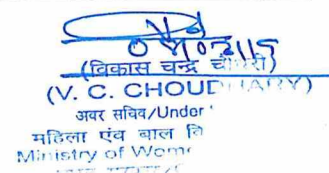 (विकास चन्द्र चौधरी)
(V. C. CHOUDHARY)
अवर सचिव/Under
महिला एंव बाल वि
Ministry of Wome